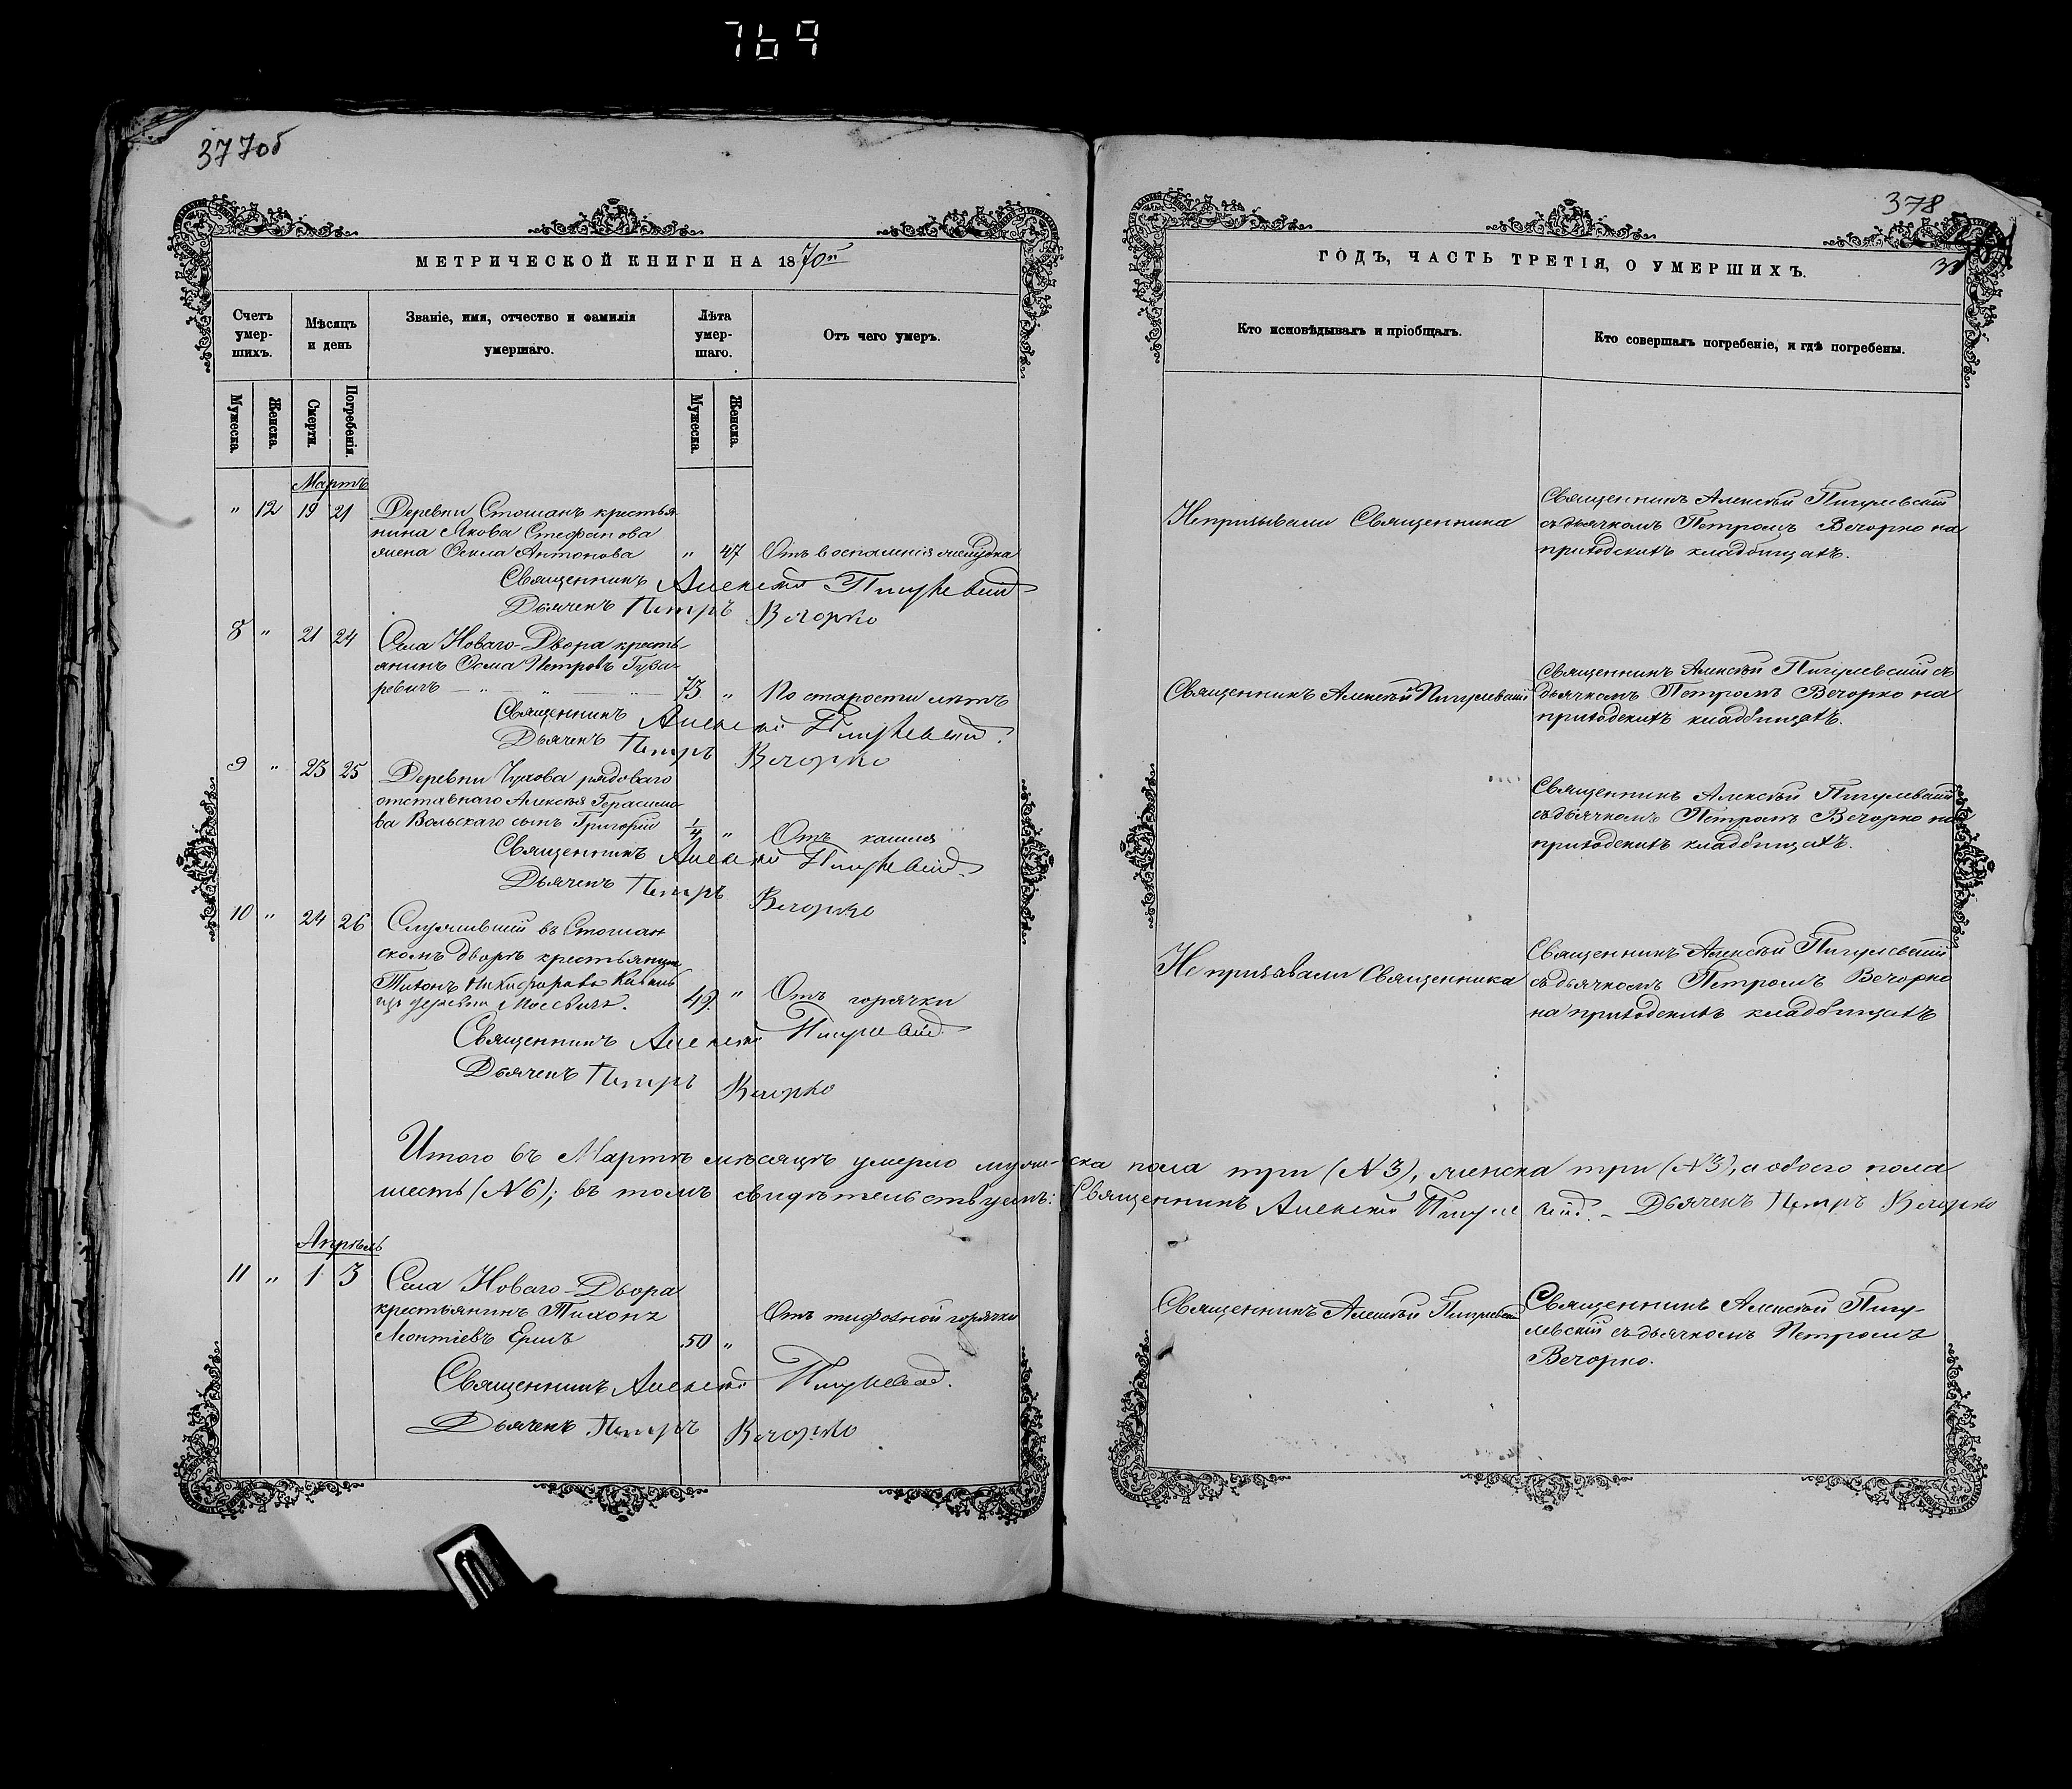 769
377об
МЕТРИЧЕСКОЙ КНИГИ НА 1870й
Счетъ умер-шихъ.
Мѣсяцъ и день
Званіе, имя, отчество и фамилія умершаго.
Лѣта умер-шаго.
Отъ чего умеръ.
Мужеска.
Женска.
Смерти.
Погребенія.
Мужеска.
Женска.
Мартъ
" 12 19 21 Деревни Стошанъ крестья
нина Якова Стефанова
жена Ѳекла Антонова " 47 Отъ воспаленія желудка
Священникъ Алексѣй Пигулевскій
Дьячекъ Петръ Вечорко
8 " 21 24 Села Новаго-Двора кресть-
янинъ Ѳома Петровъ Гуза-
ревичъ 73 " По старости лѣтъ
Священникъ Алексѣй Пигулевскій.
Дьячекъ Петръ Вечорко
9 " 23 25 Деревни рядоваго
отставнаго Алексѣя Герасимо-
ва Вольскаго сынъ Григорій 1/4 " Отъ кашля
Священникъ Алексѣй Пигулевскій
Дьячекъ Петръ Вечорко
10 " 24 26 Служившій въ Стошан
скомъ дворѣ крестьянин
Тихонъ Никифоровъ
изъ деревни 49. " Отъ горячки
Священникъ Алексѣй Пигулевскій
Дьячекъ Петръ Вечорко
Итого въ Мартѣ мѣсяцѣ умерло муже-ска пола три (N 3), женска три (N 3), а обоего пола
шесть (N 6); въ томъ свидѣтельствуемъ: Священникъ Алексѣй Пигулевскій. – Дьячекъ Петръ Вечорко
Апрѣль
11 " 1 3 Села Новаго-Двора
крестьянинъ Тихонъ Отъ тифозной горячки
Леонтіевъ Ермъ 50 "
Священникъ Алексѣй Пигулевскій.
Дьячекъ Петръ Вечорко
378
ГОДЪ, ЧАСТЬ ТРЕТІЯ, О УМЕРШИХЪ.
Кто исповѣдывалъ и пріобщалъ.
Кто совершалъ погребеніе, и гдѣ погребены.
Непризывали Священника
Священникъ Алексѣй Пигулевскій
съ дьячкомъ Петромъ Вечорко на
приходскихъ кладбищахъ.
Священникъ Алексѣй Пигулевскій
Священникъ Алексѣй Пигулевскій съ
дьячкомъ Петромъ Вечорко на
приходскихъ кладбищахъ.
Священникъ Алексѣй Пигулевскій
съ дьячкомъ Петромъ Вечорко на
приходскихъ кладбищахъ.
Не призывали Священника
Священникъ Алексѣй Пигулевскій
съ дьячкомъ Петромъ Вечорко
на приходскихъ кладбищахъ
Священникъ Алексѣй Пигулевскій
Священникъ Алексѣй Пигу-
левскій съ дьячкомъ Петромъ
Вечорко.